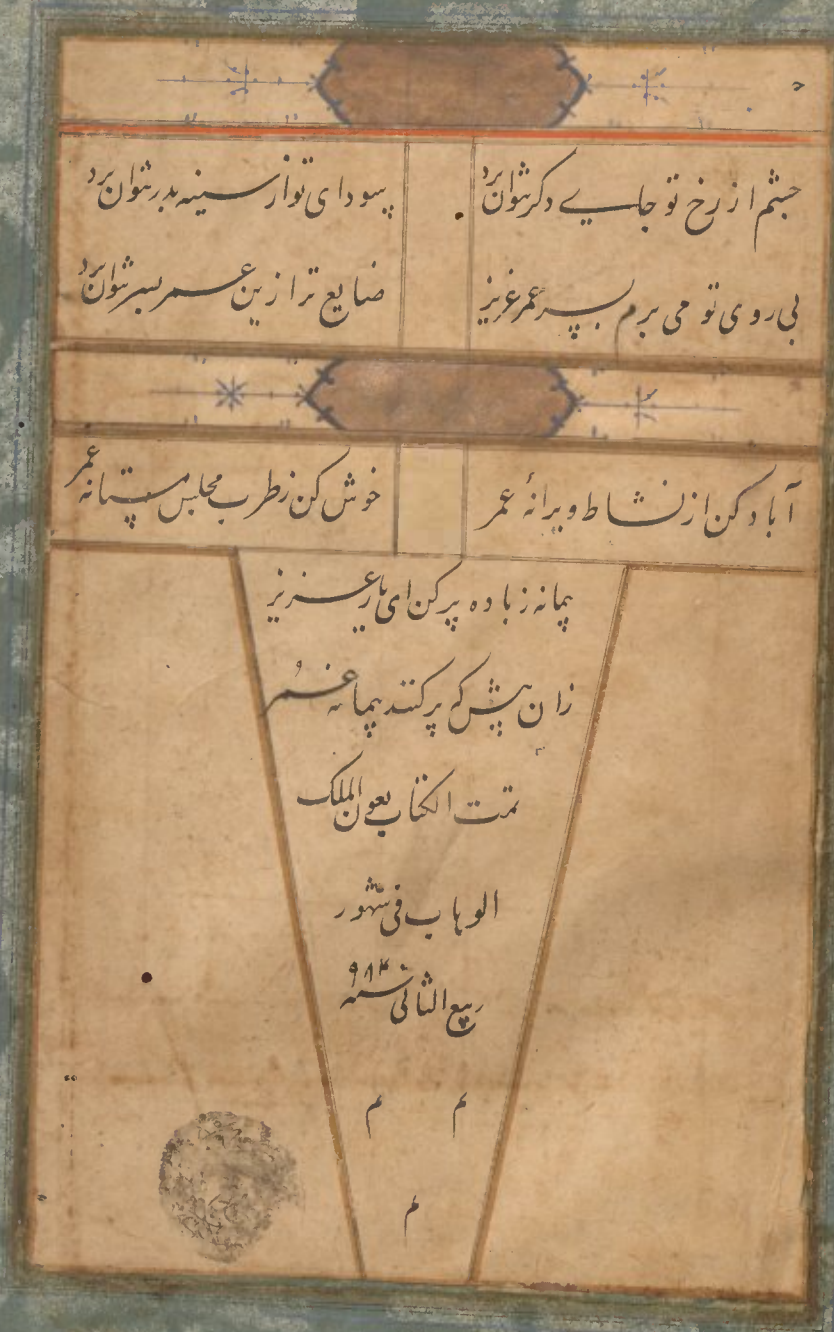 چشم از رخ تو جایے دکر نتوان برد
سودای تو از سینه بدر نتوان برد
بی روی تو می برم بسر عمر عزیز
ضایع تر ازین عمر بسر نتوان برد
آباد کن از نشاط ویرانهٔ عمر
خوش کن ز طرب مجلس مستانه عمر
پیمانه ز باده پر کن ای یار عزیز
زان پیش که پر کنند پیمانه عمر
تمت الکتاب بعون الملک
الوهاب فی شهور
ربیع الثانی سنه
م م
م